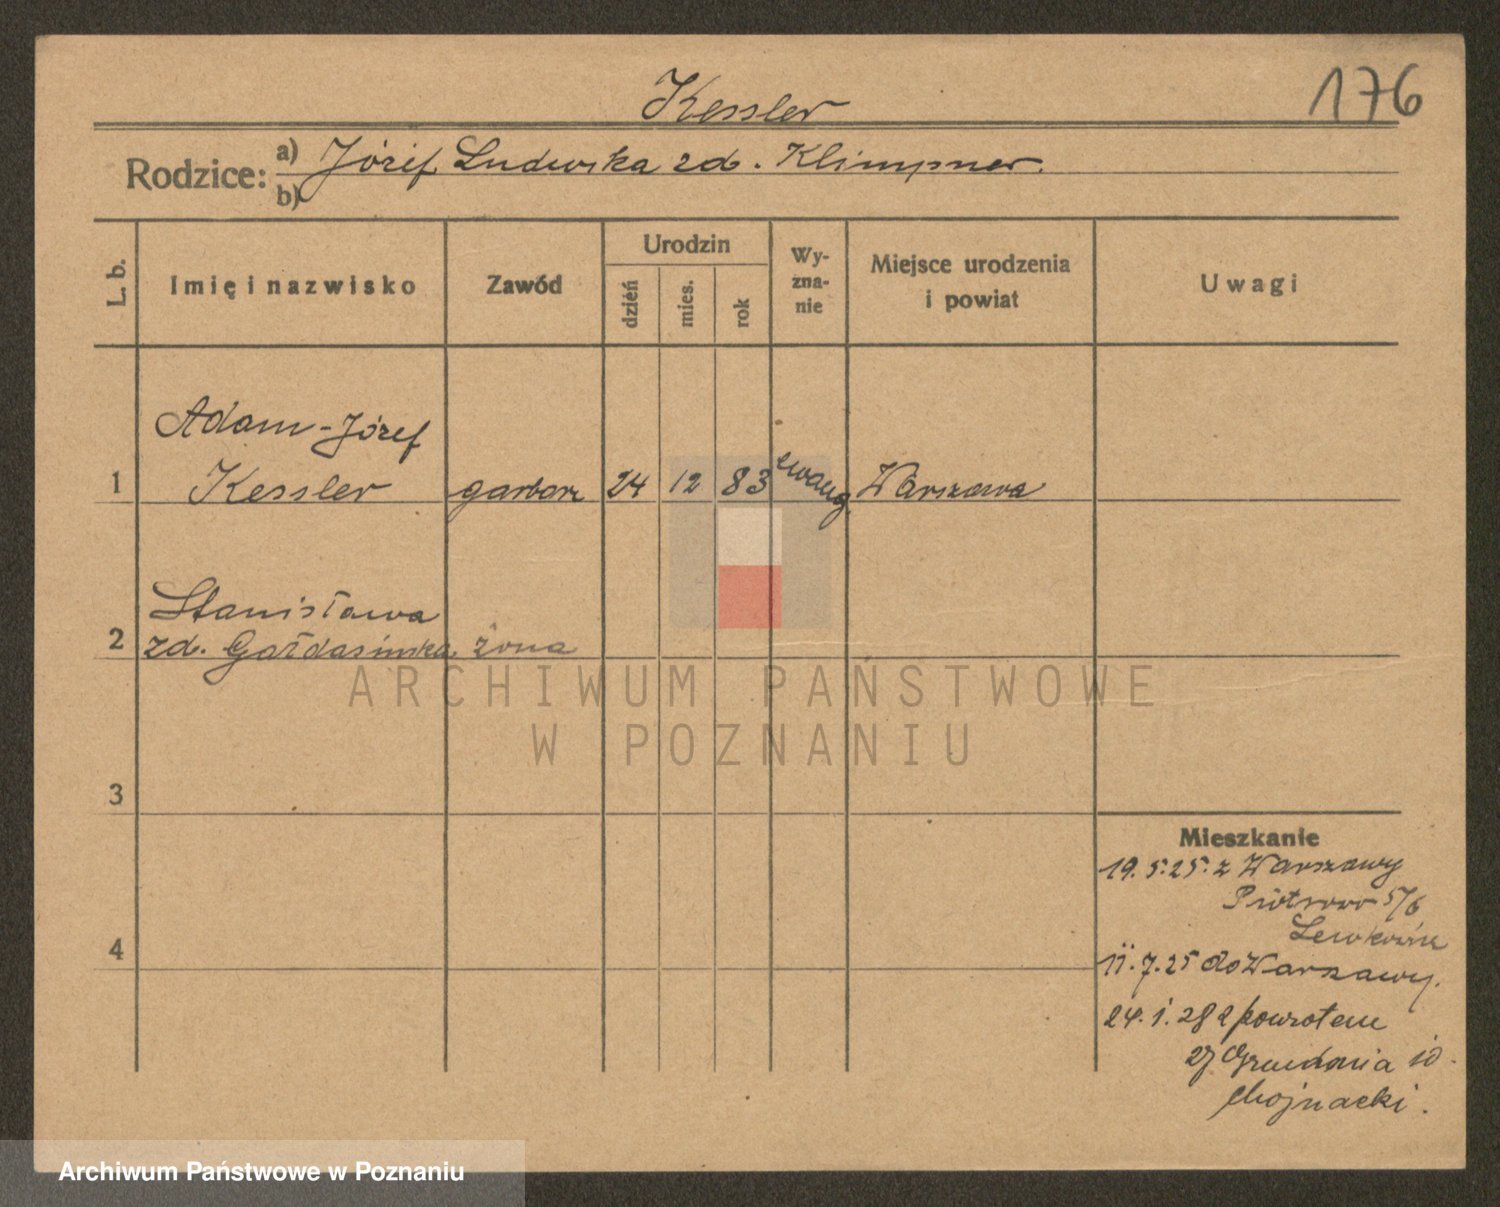 Kessler
176
Rodzice:
a) Józef Ludwika zd. Klimpner.
b)
L. b.
Imię i nazwisko
Zawód
Urodzin
dzień
mies.
rok
Wy-
zna-
nie
Miejsce urodzenia
i powiat
Uwagi
Adam-Józef
1 Kessler garbarz 24 12 83 ewang. Warszawa
Stanisława
2 zd. żona
3
4
Mieszkanie
19.5.25. z Warszawy
Piotrowo 5/6
11.7.25 do Warszawy.
24.1.28 z powrotem
Chojnacki.
ARCHIWUM PAŃSTWOWE
W POZNANIU
Archiwum Państwowe w Poznaniu